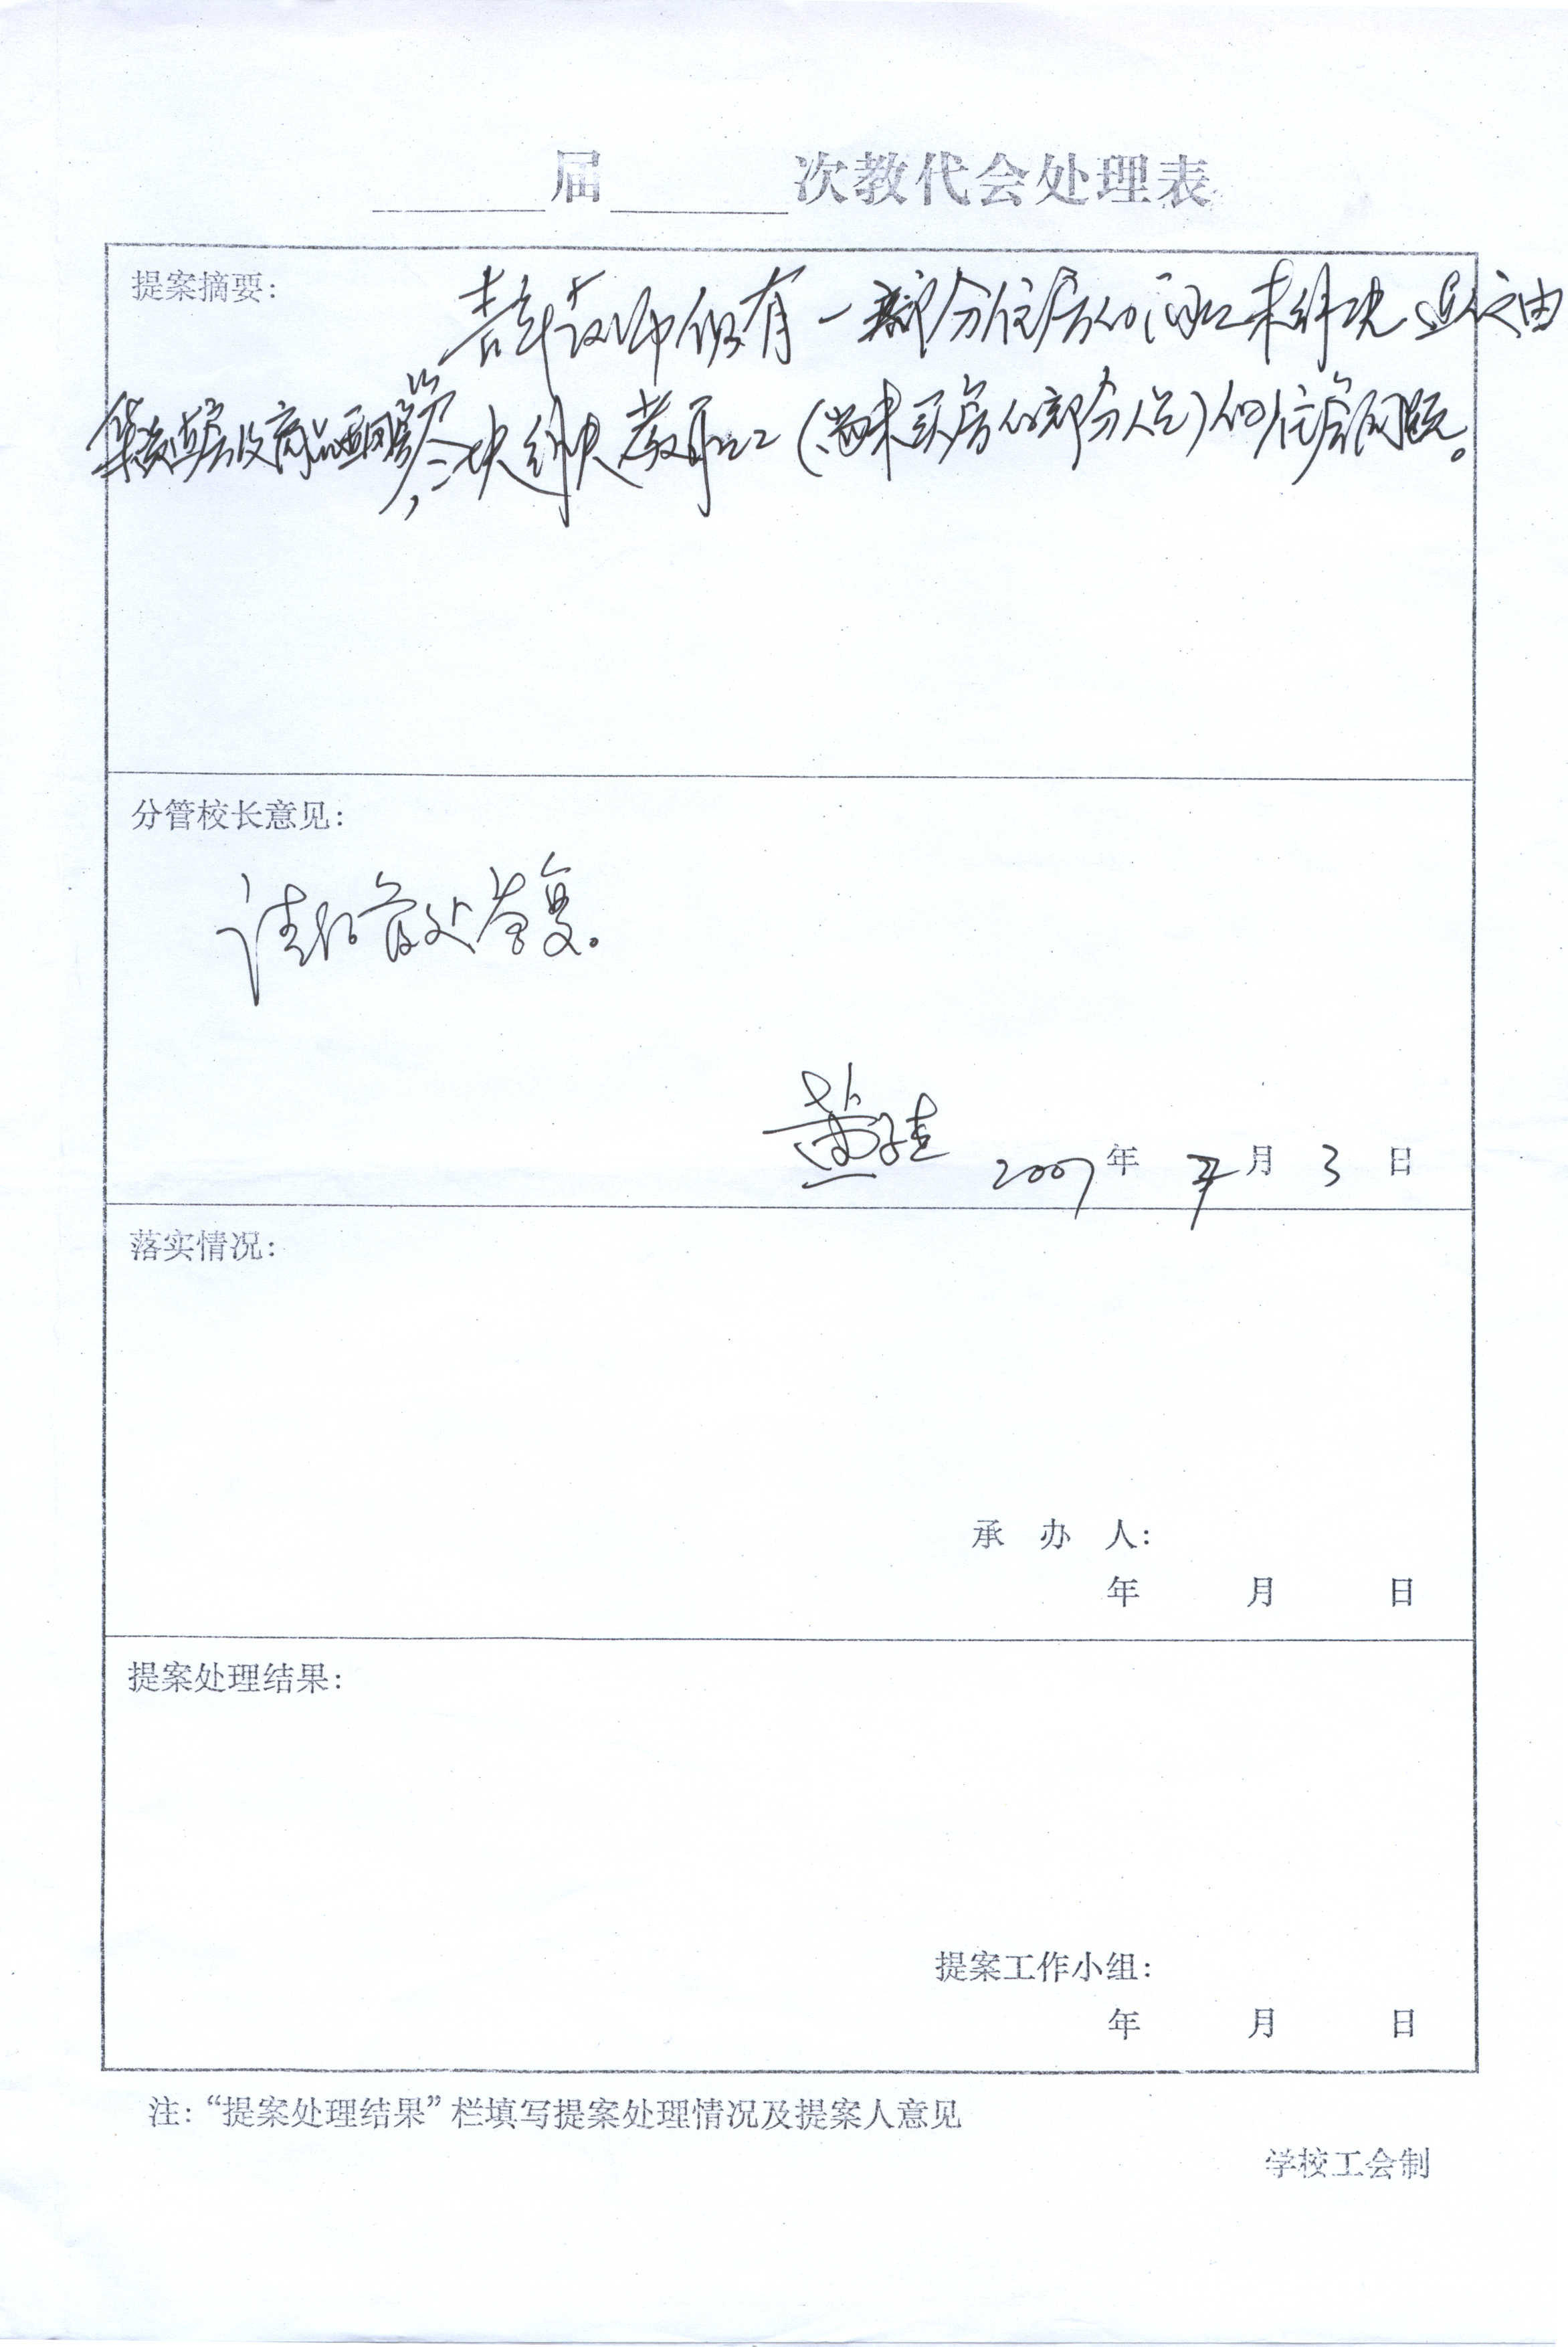 届 次教代会处理表
提案摘要：
青年教师仍有一部分住房的问题未解决
（尚未买房的部分人员）的住房问题。
分管校长意见：
请后勤处答复。
2007年 月 3 日
落实情况：
承 办 人：
年 月 日
提案处理结果：
提案工作小组：
年 月 日
注：“提案处理结果”栏填写提案处理情况及提案人意见
学校工会制